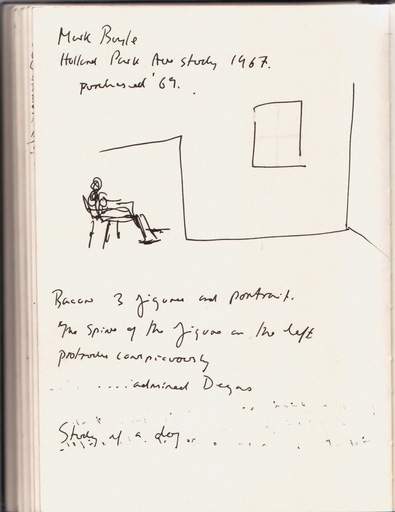 Mark Boyle
Holland Park Ave study 1967.
purchased '69.
Bacon 3 figures and portrait.
"The spine of the figure on the left
protrudes conspicuously
....admired Degas
Study of a dog.